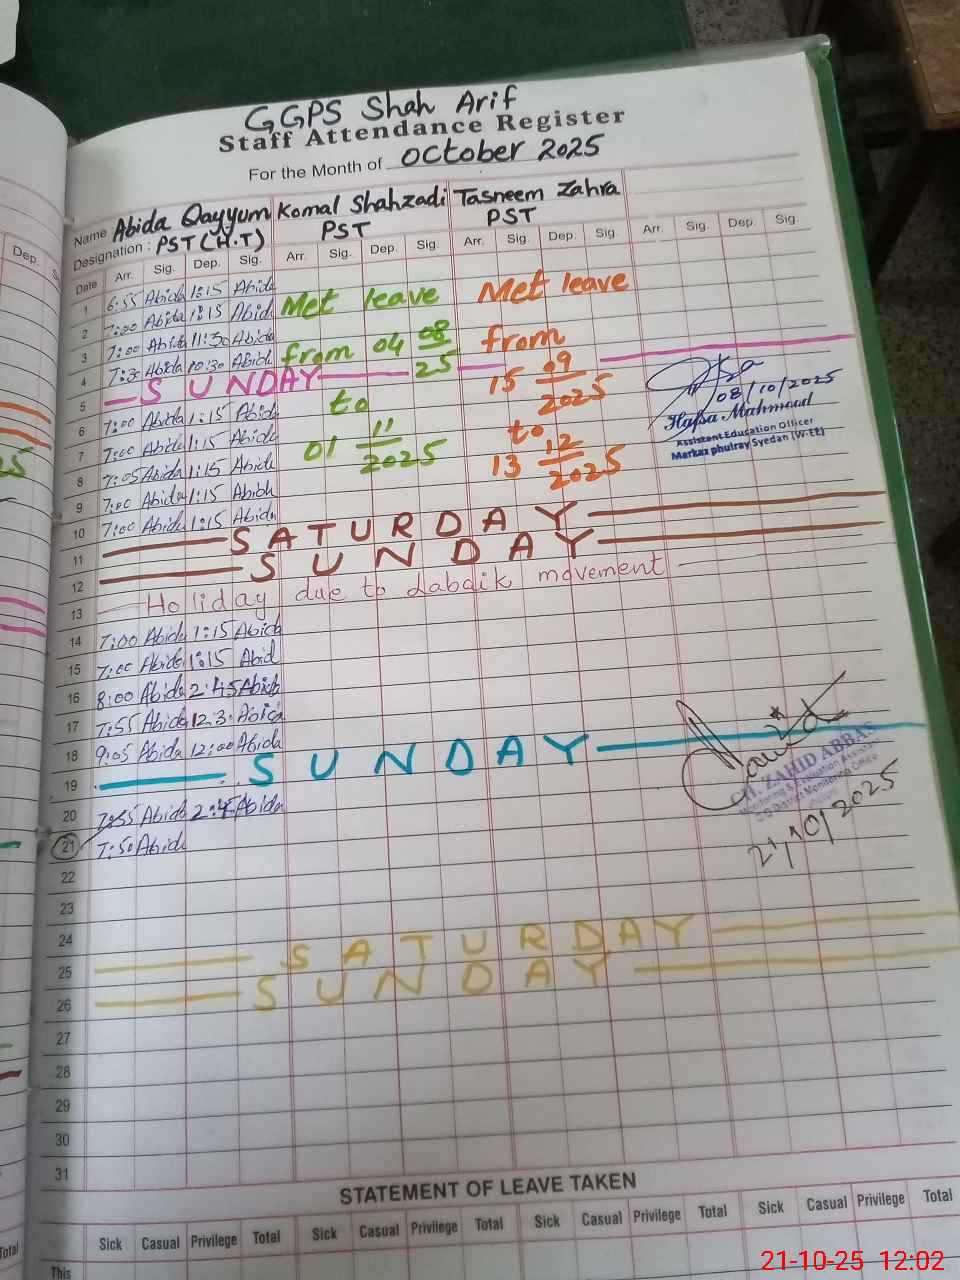 GGPS Shah Arif
Staff Attendance Register
For the Month of October 2025
Name Abida Qayyum Komal Shahzadi Tasneem Zahra
Designation : PST (H.T) PST PST
Date Arr. Sig. Dep. Sig. Arr. Sig. Dep. Sig. Arr. Sig. Dep. Sig. Arr. Sig. Dep. Sig.
1 6:55 Abida 1:15 Abida Met leave Met leave
2 7:00 Abida 1:15 Abid
3 7:00 Abida 11:30 Abida from 04 08 25 from
4 7:30 Abida 10:30 Abida 15 09 2025
5 SUNDAY
6 7:00 Abida 1:15 Abida to
7 7:00 Abida 1:15 Abida 01 11 2025 to
8 7:05 Abida 1:15 Abida 13 12 2025
9 7:00 Abida 1:15 Abida
10 7:00 Abida 1:15 Abida
11 SATURDAY
12 SUNDAY
13 Holiday due to labaik movement
14 7:00 Abida 1:15 Abida
15 7:00 Abida 1:15 Abid
16 8:00 Abida 2:45 Abida
17 7:55 Abida 12:3 Abida
18 9:05 Abida 12:00 Abida
19 SUNDAY
20 7:55 Abida 2:45 Abida
21 7:50 Abida
22
23
24
25 SATURDAY
26 SUNDAY
27
28
29
30
31
08/10/2025
Hafsa Mahmood
Assistent Education Officer
Markaz phulray Syedan (W-EE)
CH. ZAHID ABBAS
Monitoring & Evaluation Assistant
District Monitoring Office
21/10/2025
STATEMENT OF LEAVE TAKEN
Sick Casual Privilege Total Sick Casual Privilege Total Sick Casual Privilege Total Sick Casual Privilege Total
This
Dep.
Total
21-10-25 12:02